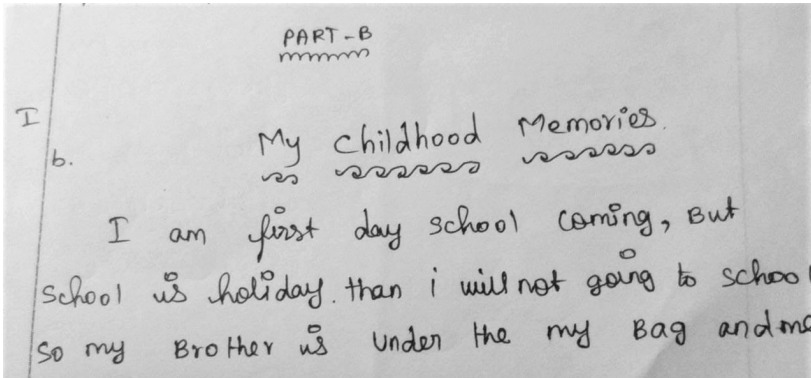 PART-B
I
b.
My childhood Memories.
I am first day school coming, But
school is holiday. than i will not going to school
So my Brother is under the my Bag and me